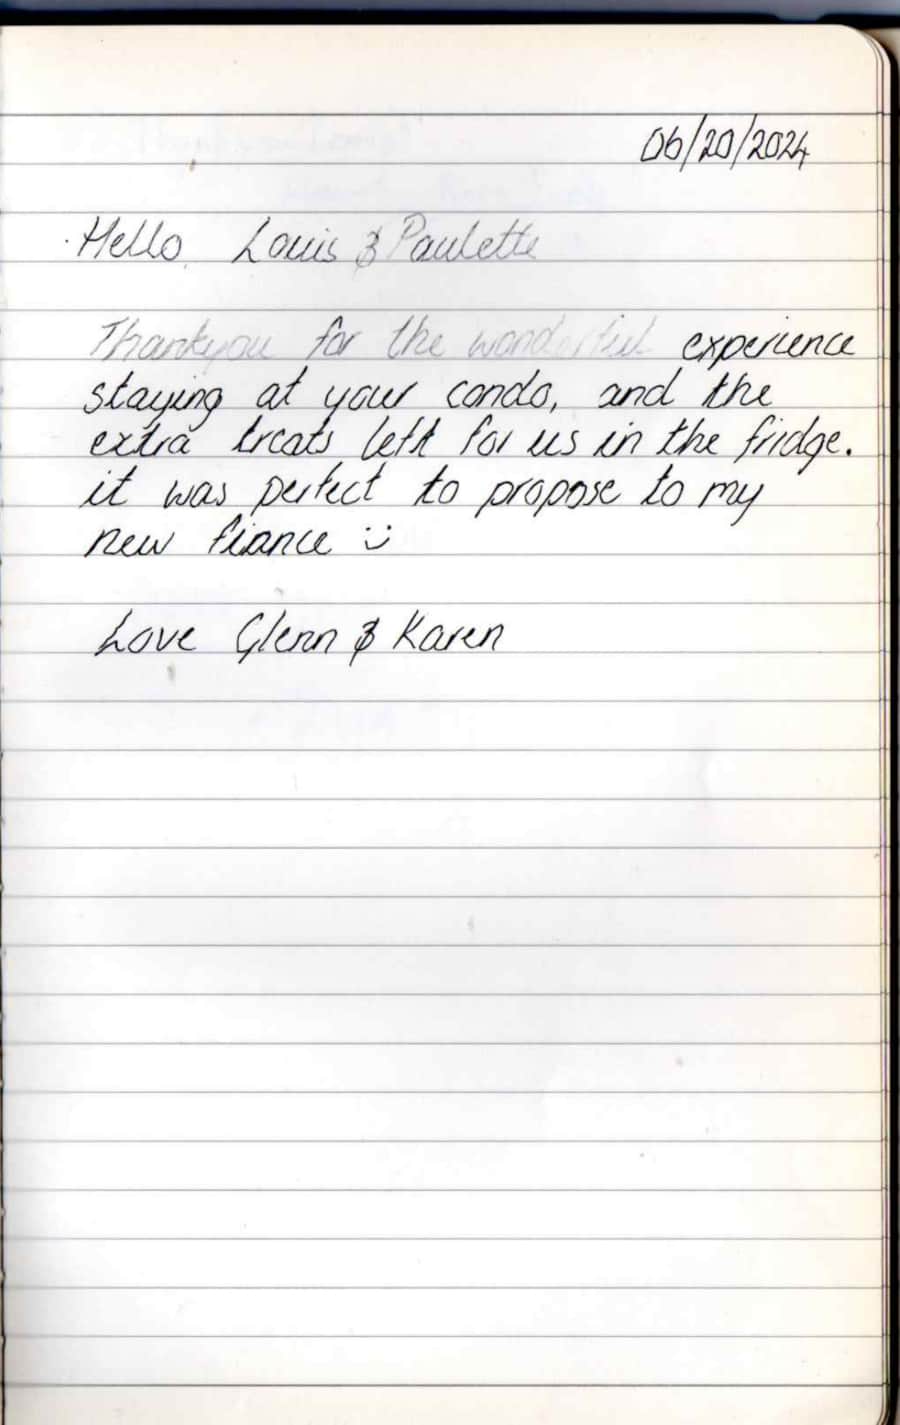 06/20/2024
Hello Louis & Paulette
Thankyou for the wonderful experience
staying at your condo, and the
extra treats left for us in the fridge.
it was perfect to propose to my
new fiance :)
Love Glenn & Karen